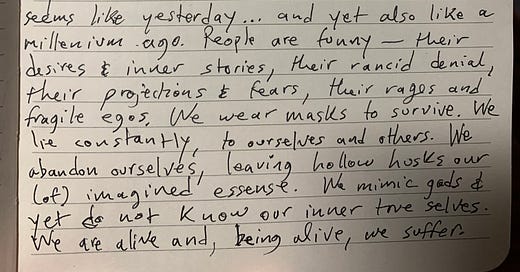 seems like yesterday... and yet also like a
millenium ago. People are funny — their
desires & inner stories, their rancid denial,
their projections & fears, their rages and
fragile egos. We wear masks to survive. We
lie constantly, to ourselves and others. We
abandon ourselves, leaving hollow husks our
(of) imagined essense. We mimic gods &
yet do not know our inner true selves.
We are alive and, being alive, we suffer.